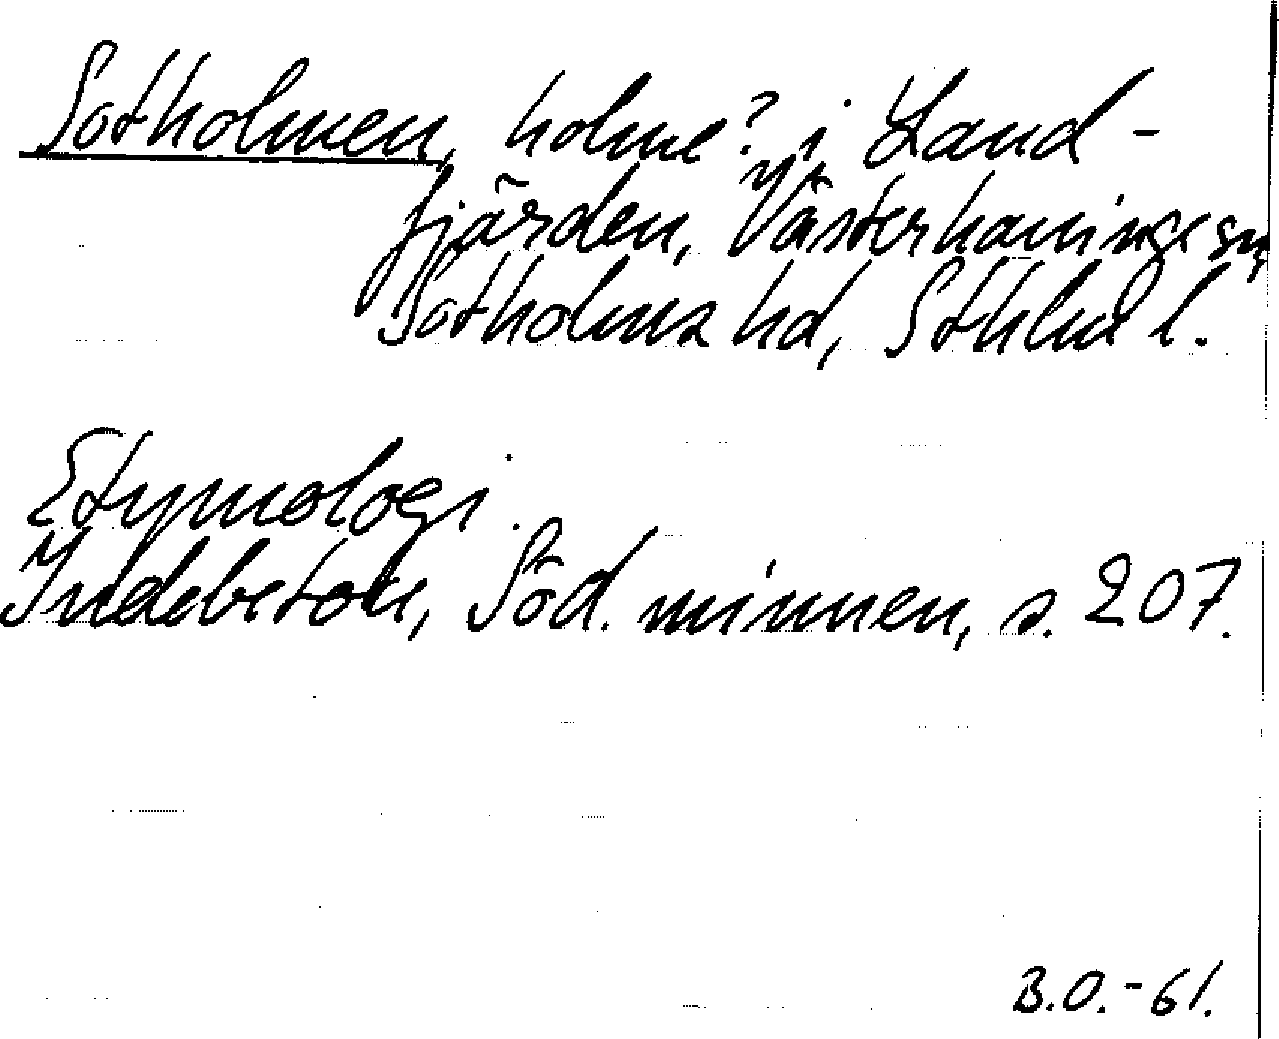 Sotholmen, holme? i Land-
fjärden, Västerhaninge sn,
Sotholms hd, Sthlms l.
Etymologi.
Indebetou, Söd. minnen, s. 207.
B.O.-61.